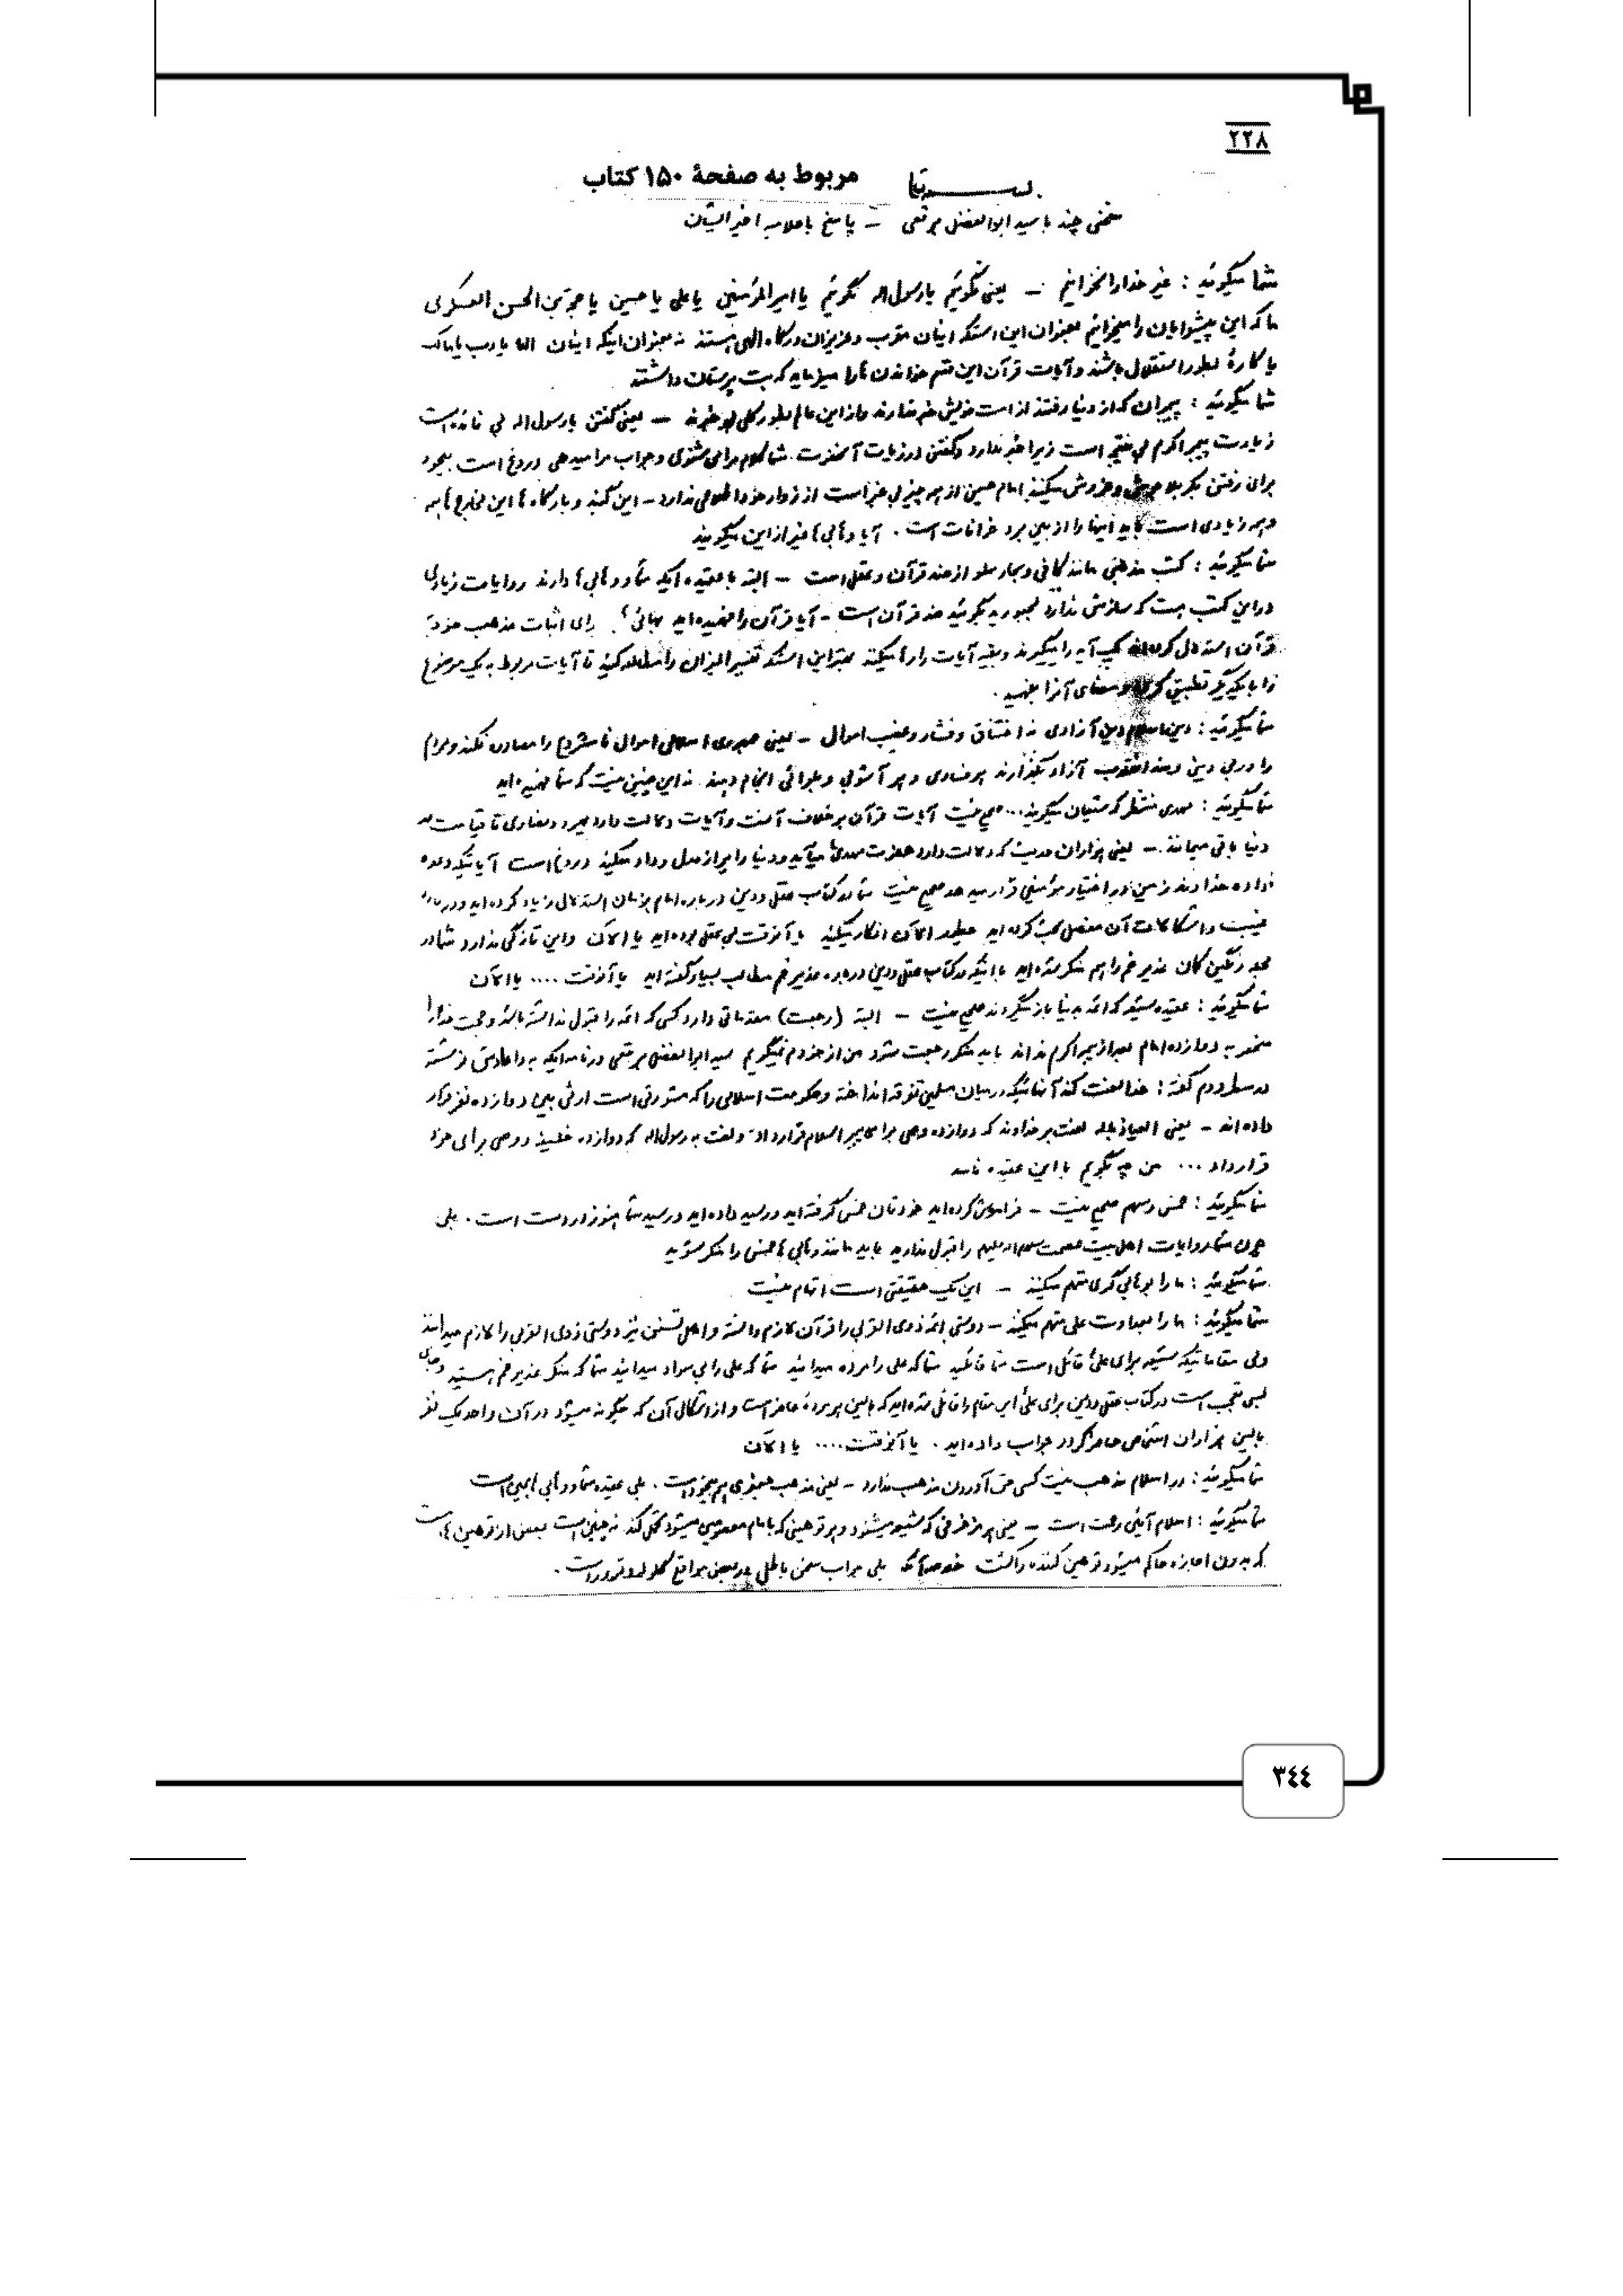 ۲۲۸
بسمه تعالی مربوط به صفحهٔ ۱۵۰ کتاب
سخنی چند با سید ابوالفضل برقعی – پاسخ باعلامیه اخیر ایشان
شما میگوئید : غیر خدا را نخوانیم – یعنی نگوئیم یا رسول اله نگوئیم یا امیرالمؤمنین یا علی یا حسین یا حجة بن الحسن العسکری
ما که این پیشوایان را میخوانیم بعنوان این استکه اینان مقرب و عزیزان درگاه الهی هستند نه بعنوان اینکه اینان الها یا رب یا مالک
یا کارهٔ بطور استقلال باشند و آیات قرآن این قسم خواندن را میفرماید که بت پرستان داشتند
شما میگوئید : پیمبران که از دنیا رفتند از امت خویش خبر ندارند و از این عالم بطور کلی بیخبرند – یعنی گفتن یا رسول اله بی فائده است
زیارت پیمبر اکرم بی نتیجه است زیرا خبر ندارد و گفتن در زیارت آنحضرت شما کلام مرا می شنوی و جواب مرا میدهی دروغ است بیخود
برای رفتن بکربلا جوش و خروش میکنند امام حسین از همه چیز بی خبر است از زوار خود اطلاعی ندارد – این گنبد و بارگاه ها این مخارج ها همه
همه زیادی است باید اینها را از بین برد خرافات است . آیا وهابی ها غیر از این میگویند
شما میگوئید : کتب مذهبی مانند کافی و بحار مملو از ضد قرآن و عقل است – البته با عقیده ایکه شما و وهابی ها دارند روایات زیادی
در این کتب هست که سازش ندارد مجبورید بگوئید ضد قرآن است – آیا قرآن را فهمیده اید بهائی ها برای اثبات مذهب خود به
قرآن استدلال کرده اند یک آیه را میگیرند و بقیه آیات را رها میکنند بهتر این استکه تفسیر المیزان را مطالعه کنید تا آیات مربوط به یک موضوع
را با یکدیگر تطبیق کرده و معنای آنرا بفهمید .
شما میگوئید : دین اسلام دین آزادی نه اختناق و فشار و غصب اموال – یعنی جمهوری اسلامی اموال نامشروع را مصادره نکند و مردم
را در بی دینی و ضد انقلاب آزاد بگذارند هر فسادی و هر آشوبی و بلوائی انجام دهند نه این چنین نیست که شما فهمیده اید
شما میگوئید : مهدی منتظر که شیعیان میگویند... صحیح نیست آیات قرآن بر خلاف آنست و آیات دلالت دارد یهود و نصاری تا قیامت در
دنیا باقی میمانند – یعنی هزاران حدیث که دلالت دارد حضرت مهدی میآید و دنیا را پر از عدل و داد میکند دروغ است آیا تیکه وعده
داده خداوند زمین در اختیار مؤمنین قرار میدهد صحیح نیست شما در کتاب عقل و دین در باره امام زمان استدلالی زیاد کرده اید و در باره
غیبت و اشکالات آن مفصل بحث کرده اید چطور الآن انکار میکنید یا آنوقت بی عقل بوده اید یا الآن و این تازگی ندارد شما در
مجله رنگین کمان غدیر خم را هم منکر شده اید با اینکه در کتاب عقل و دین درباره غدیر خم مطالب بسیار گفته اید یا آنوقت .... یا الآن
شما میگوئید : عقیده شیعه که ائمه بدنیا باز میگردند صحیح نیست – البته (رجعت) مقدماتی دارد کسی که ائمه را قبول نداشته باشد و حجت خدا را
منحصر به دوازده امام بعد از پیمبر اکرم نداند باید منکر رجعت شود من از خودم نمیگویم سید ابوالفضل برقعی در نامه ایکه به ... نوشته
در سطر دوم گفته : خدا لعنت کند آنها ئیکه در میان مسلمین تفرقه انداخته و حکومت اسلامی را که مشورتی است ارثی بلبی دوازده نفر قرار
داده اند – یعنی العیاذ بالله لعنت بر خداوند که دوازده وصی برای پیمبر اسلام قرار داد و لعنت به رسول اله که دوازده خلیفه و وصی برای خود
قرار داد ... من چه بگویم با این عقیده فاسد
شما میگوئید : خمس و سهم صحیح نیست – فراموش کرده اید خودتان خمس گرفته اید و رسید داده اید و رسید شما هنوز در دست است . بلی
چون شما روایات اهل بیت عصمت سلام اله علیهم را قبول ندارید باید مانند وهابی ها خمس را منکر شوید
شما میگوئید : ما را بوهابی گری متهم میکنند – این یک حقیقتی است اتهام نیست
شما میگوئید : ما را بعداوت علی متهم میکنند – دوستی ائمه ذوی القربی را قرآن لازم دانسته و اهل تسنن نیز دوستی ذوی القربی را لازم میدانند
ولی مقاماتیکه شیعه برای علی قائل است شما قائلید شما که علی را مرده میدانید شما که علی را بی سواد میدانید شما که منکر غدیر خم هستید و جای
بسی تعجب است در کتاب عقل و دین برای علی این مقام را قائل شده اید که بالین هر مردهٔ حاضر است و از اشکال آن که چگونه میشود در آن واحد یک نفر
بالین هزاران اشخاص حاضر گردد جواب داده اید . یا آنوقت .... یا الآن
شما میگوئید : در اسلام مذهب نیست کسی حق آوردن مذهب ندارد – یعنی مذهب جعفری هم بیخود است . بلی عقیده شما و وهابی ها همین است
شما میگوئید : اسلام آئین رحمت است – یعنی هر مزخرفی که شنیده میشنود و هر توهینی که با امام معصومین میشود تحمل کند نه چنین است بعضی از توهین ها است
که بدون اجازه حاکم میشود توهین کننده را کشت بلی جواب سخن باطل در بعضی مواقع گلوله و ترور است .
۳٤٤